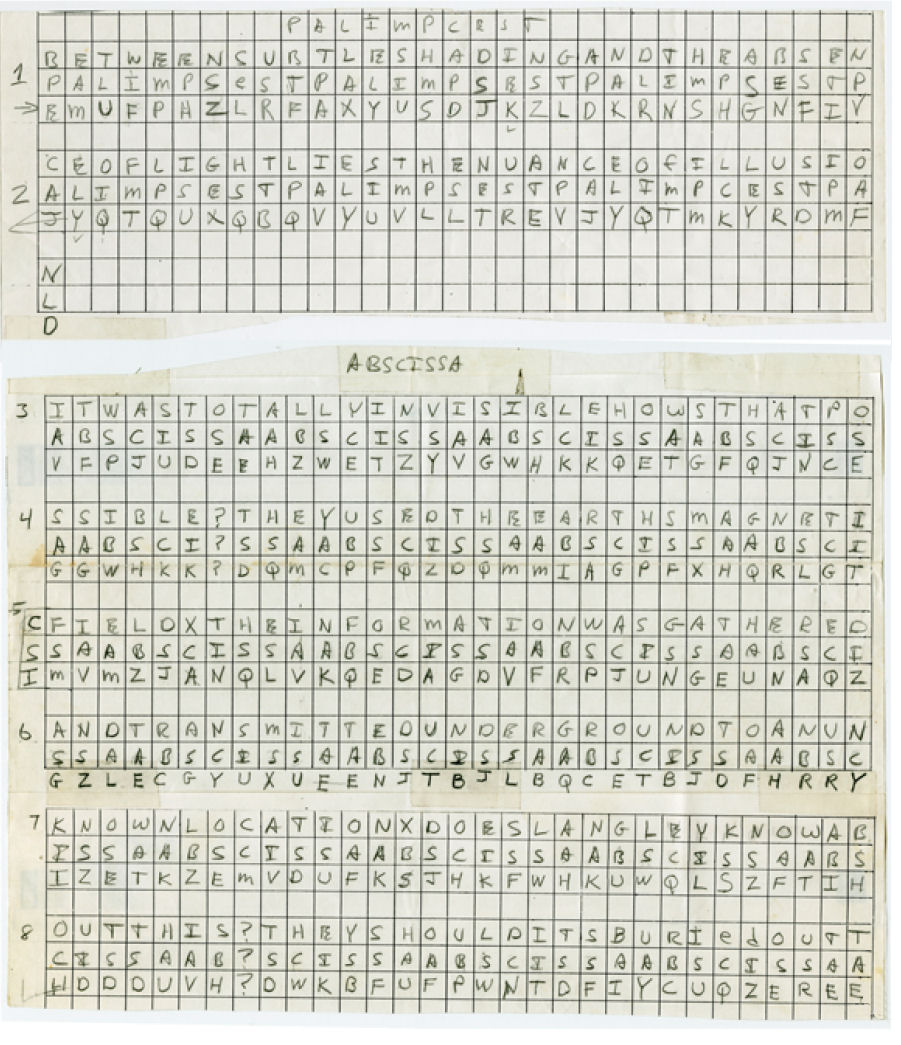 P A L I m P C E S T
1 B E T W E E N S U B T L E S H A D I N G A N D T H E A B S E N
P A L I m P S e S T P A L I m P S E S T P A L I m P S E S T P
→ E m U F P H Z L R F A X Y U S D J K Z L D K R N S H G N F I V
2 C E O F L I G H T L I E S T H E N U A N C E O f I L L U S I O
A L I m P S E S T P A L I m P S E S T P A L I m P C E S T P A
J Y Q T Q U X Q B Q V Y U V L L T R E V J Y Q T m K Y R D m F
N
L
D
ABSCISSA
3 I T W A S T O T A L L Y I N V I S I B L E H O W S T H A T P O
A B S C I S S A A B S C I S S A A B S C I S S A A B S C I S S
V F P J U D E E H Z W E T Z Y V G W H K K Q E T G F Q J N C E
4 S S I B L E ? T H E Y U S E D T H E E A R T H S m A G N E T I
A A B S C I ? S S A A B S C I S S A A B S C I S S A A B S C I
G G W H K K ? D Q m C P F Q Z D Q m m I A G P F X H Q R L G T
5 C F I E L D X T H E I N F O R m A T I O N W A S G A T H E R E D
S S A A B S C I S S A A B S C I S S A A B S C I S S A A B S C I
I m V m Z J A N Q L V K Q E D A G D V F R P J U N G E U N A Q Z
6 A N D T R A N S m I T T E D U N D E R G R O U N D T O A N U N
S S A A B S C I S S A A B S C I S S A A B S C I S S A A B S C
G Z L E C G Y U X U E E N J T B J L B Q C E T B J D F H R R Y
7 K N O W N L O C A T I O N X D O E S L A N G L E Y K N O W A B
I S S A A B S C I S S A A B S C I S S A A B S C I S S A A B S
I Z E T K Z E m V D U F K S J H K F W H K U W Q L S Z F T I H
8 O U T T H I S ? T H E Y S H O U L D I T S B U R I e d O U T T
C I S S A A B ? S C I S S A A B S C I S S A A B S C I S S A A
H D D D U V H ? D W K B F U F P W N T D F I Y C U Q Z E R E E